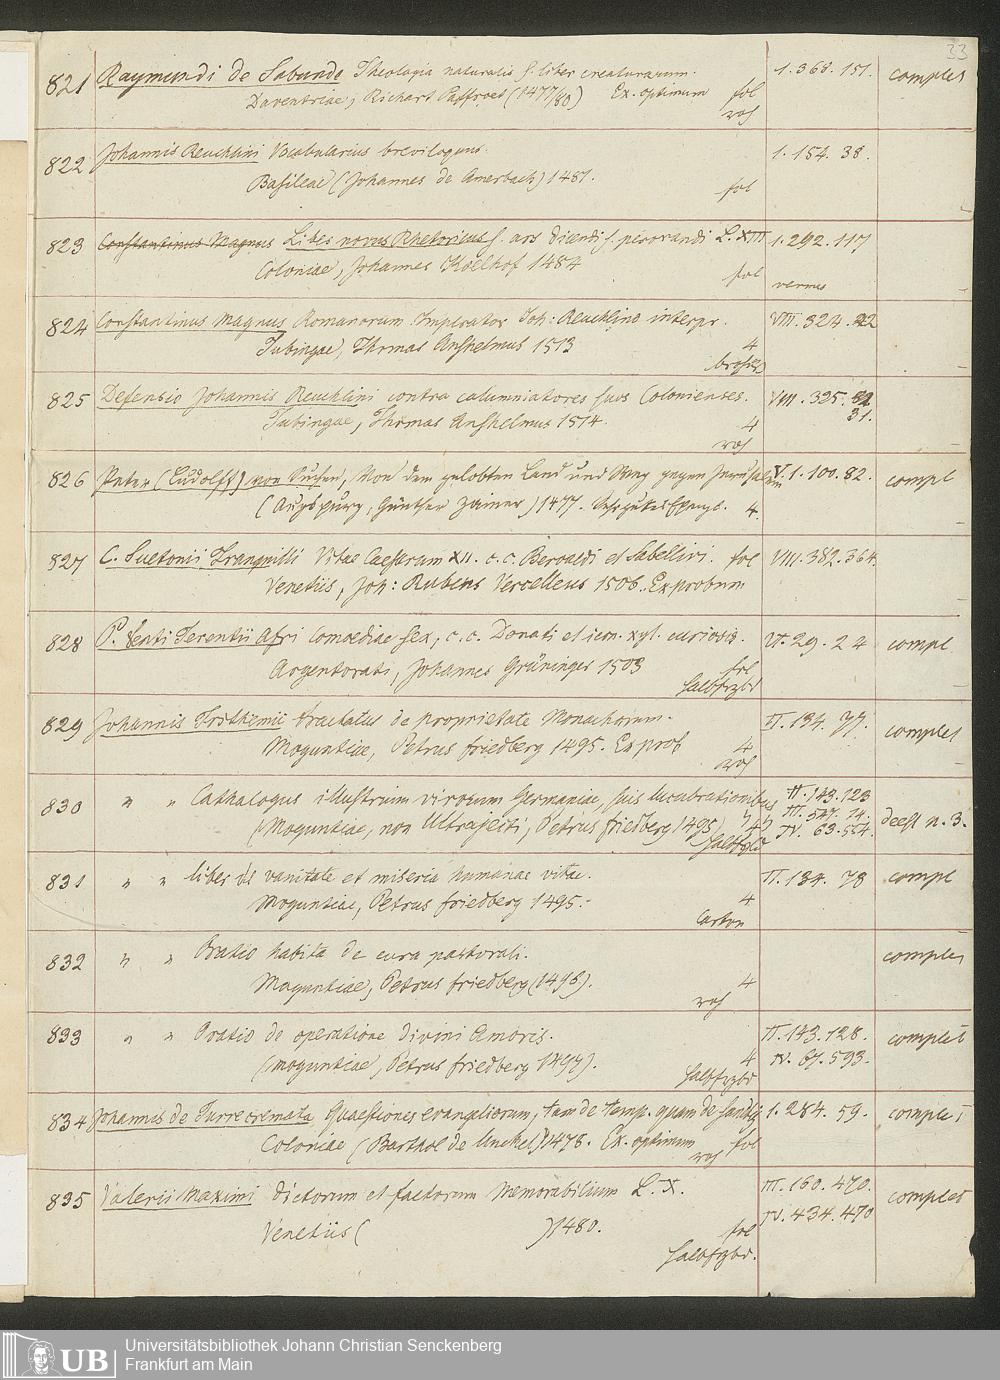 33
821 Raymundi de Sabunde Theologia naturalis s. liber creaturarum. 1. 368. 151. complet
Daventriae, Richart Paffroet (1477/80) Ex. optimum fol
roh
822 Johannis Reuchlini Vocabularius breviloquus. 1. 154. 38.
Basileae (Johannes de Amerbach) 1481. fol
823 Constantinus Magnus Liber novus Rhetoricus s. ars dicendi s. perorandi L. XIII 1. 292. 117
Coloniae, Johannes Koelhof 1484 fol
824 Constantinus Magnus Romanorum Imperator Joh: Reuchlino interpr. VIII. 324. 22
Tubingae, Thomas Anshelmus 1513 4
825 Defensio Johannis Reuchlini contra calumniatores suos Colonienses. VIII. 325.
31.
Tubingae, Thomas Anshelmus 1514. 4
roh
826 Peter (Ludolff) von Suchen, Von dem gelobten Land und Weg gegen Jerusalem V. 1. 100. 82. compl
(Augspurg, Günther Zainer) 1477. Sehr gutes Exempl. 4.
827 C. Suetonii Tranquilli Vitae Caesarum XII. c. c. Beroaldi et Sabellici. fol VIII. 382. 364.
Venetiis, Joh: Rubens Vercellens 1506. Ex probum
828 P. Terentii Afri Comoediae sex, c. c. Donati et icon. xyl. curiosis. VI. 29. 24 compl
Argentorati, Johannes Grüninger 1503 fol
Halbfrzbd
829 Johannis Trithemii tractatus de proprietate Monachorum. II. 134. 77. complet
Moguntiae, Petrus Friedberg 1495. Ex prob 4
roh
830 " " Cathalogus illustrium virorum Germaniae, suis lucubrationibus II. 143. 123
III. 547. 14.
(Moguntiae, non Ultrajecti, Petrus Friedberg 1495) 4 IV. 63. 554. deest n. 3.
Halbfzbd
831 " " liber de vanitate et miseria humanae vitae. II. 134. 78 compl
Moguntiae, Petrus Friedberg 1495. 4
Carton
832 " " Oratio habita de cura pastorali. complet
Moguntiae, Petrus Friedberg (1496). 4
roh
833 " " Oratio de operatione divini Amoris. II. 143. 128. complet
(Moguntiae, Petrus Friedberg 1497). 4 IV. 67. 593.
Halbfrzbd
834 Johannes de Turrecremata Quaestiones evangeliorum, tam de temp. quam de sanctis 1. 284. 59. complet
Coloniae (Barthol de Unckel) 1478. Ex. optimum fol
roh
835 Valerii Maximi dictorum et factorum memorabilium L. X. III. 160. 470. complet
IV. 434. 470
Venetiis ( ) 1480. fol
Halbfrzbd.
UB
Universitätsbibliothek Johann Christian Senckenberg
Frankfurt am Main